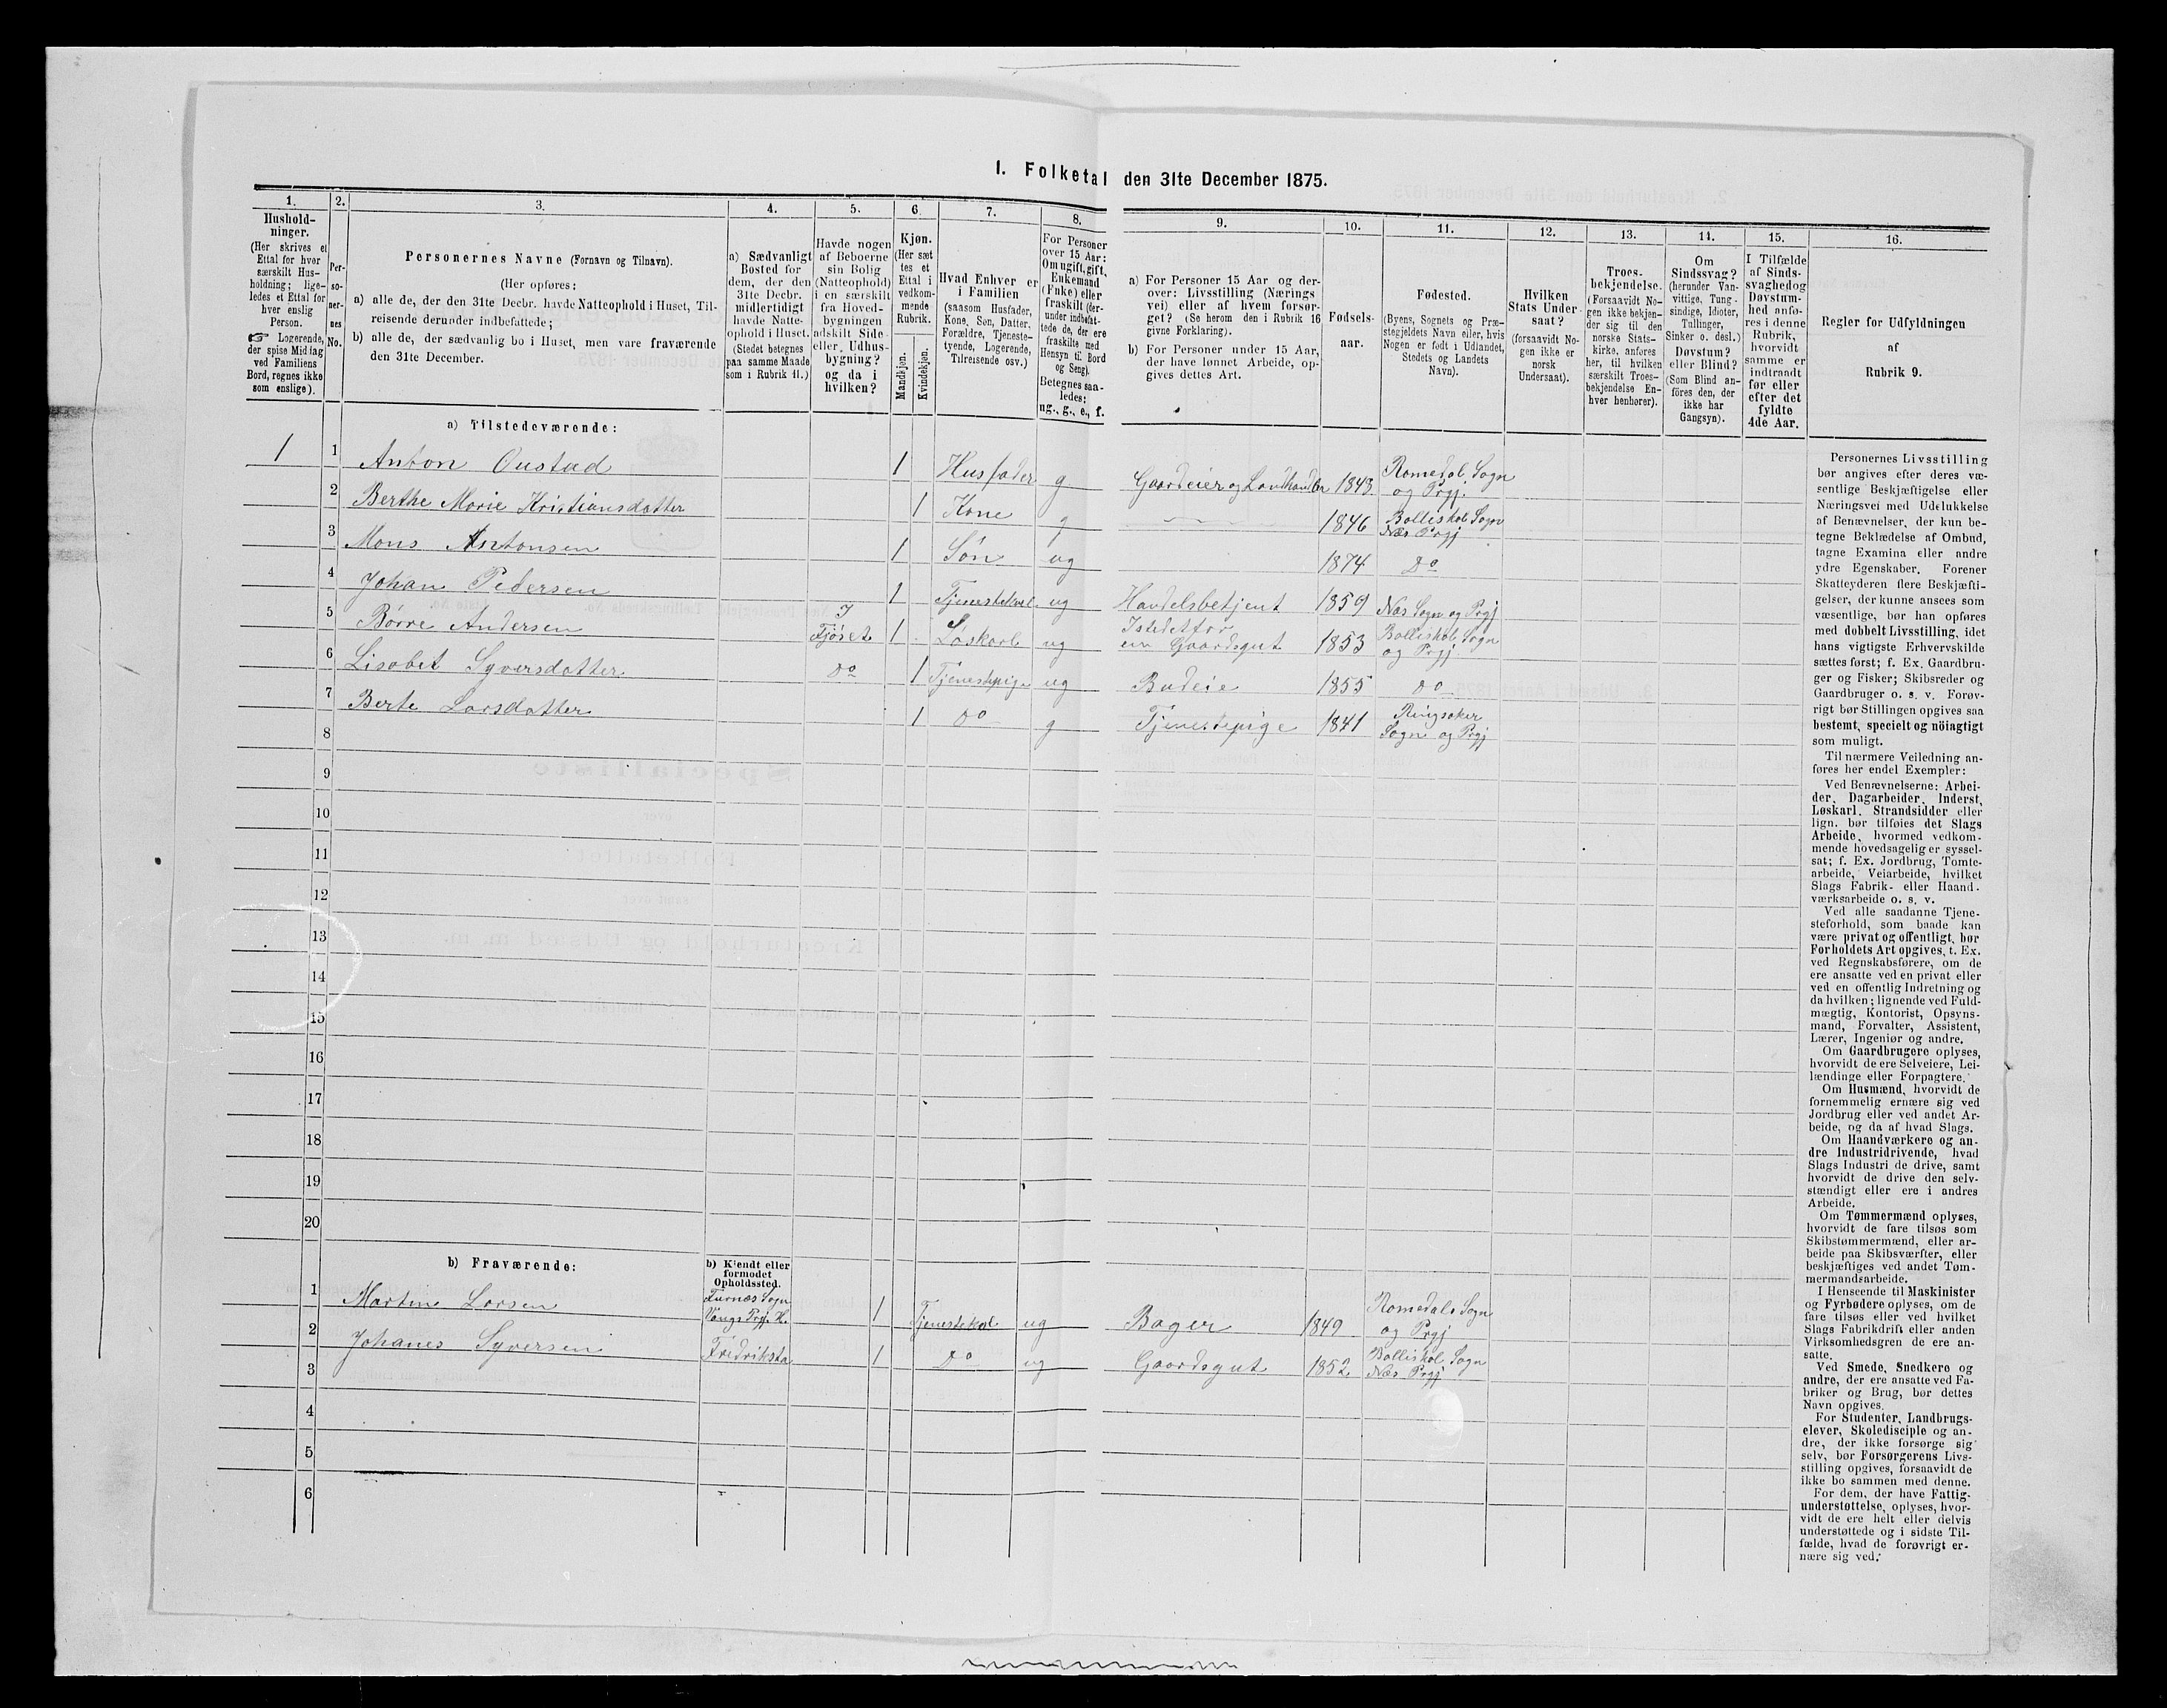 I. Folketal den 31te December 1875.
1.
Hushold-
ninger.
(Her skrives et
Ettal for hver
særskilt Hus-
holdning; lige-
ledes et Ettal for
hver enslig
Person.
☞ Logerende,
der spise Middag
ved Familiens
Bord, regnes ikke
som enslige).
2.
Per-
so-
ner-
nes
No.
3.
Personernes Navne (Fornavn og Tilnavn).
(Her opføres:
a) alle de, der den 31te Decbr. havde Natteophold i Huset, Til-
reisende derunder indbefattede;
b) alle de, der sædvanlig bo i Huset, men vare fraværende
den 31te December.
4.
a) Sædvanligt
Bosted for
dem, der den
31te Decbr.
midlertidigt
havde Natte-
ophold i Huset.
(Stedet betegnes
paa samme Maade
som i Rubrik 11.)
5.
Havde nogen
af Beboerne
sin Bolig
(Natteophold)
i en særskilt
fra Hoved-
bygningen
adskilt Side-
eller Udhus-
bygning?
og da i
hvilken?
6.
Kjøn.
(Her sæt
tes et
Ettal i
vedkom-
mende
Rubrik.
Mandkjøn.
Kvindekjøn.
7.
Hvad Enhver er
i Familien
(saasom Husfader,
Kone, Søn, Datter,
Forældre, Tjeneste-
tyende, Logerende,
Tilreisende osv.)
8.
For Personer
over 15 Aar:
Om ugift, gift,
Enkemand
(Enke) eller
fraskilt (der-
under indbefat-
tede de, der ere
fraskilte med
Hensyn til Bord
og Seng).
Betegnes saa-
ledes:
ug., g., e., f.
9.
a) For Personer 15 Aar og der-
over: Livsstilling (Nærings
vei) eller af hvem forsør-
get? (Se herom den i Rubrik 16
givne Forklaring).
b) For Personer under 15 Aar,
der have lønnet Arbeide, op-
gives dettes Art.
10.
Fødsels-
aar.
11.
Fødested.
(Byens, Sognets og Præ-
stegjeldets Navn eller, hvis
Nogen er født i Udlandet,
Stedets og Landets
Navn).
12.
Hvilken
Stats Under-
saat?
(forsaavidt No-
gen ikke er
norsk
Undersaat).
13.
Troes-
bekjendelse.
(Forsaavidt No-
gen ikke bekjen-
der sig til den
norske Stats-
kirke, anføres
her, til hvilken
særskilt Troes-
bekjendelse En-
hver henhører).
14.
Om
Sindssvag?
(herunder Van-
vittige, Tung-
sindige, Idioter,
Tullinger,
Sinker o. desl.)
Døvstum?
eller Blind?
(Som Blind an-
føres den, der
ikke har
Gangsyn).
15.
I Tilfælde
af Sinds-
svaghed og
Døvstum-
hed anfø-
res i denne
Rubrik,
hvorvidt
samme er
indtraadt
før eller
efter det
fyldte
4de Aar.
16.
Regler for Udfyldningen
af
Rubrik 9.
a) Tilstedeværende:
1 1 Anton Oustad 1 Husfader g Gaardeier og Landhandler 1843 Romedal Sogn
og Prgj.
2 Berthe Marie Kristiansdatter 1 Kone g 1846 Balliskol Sogn
Næs Prgj
3 Mons Antonsen 1 Søn ug 1874 Do
4 Johan Pedersen 1 Tjenestekarl ug Handelsbetjent 1859 Næs Sogn og Prgj
5 Børre Andersen I
Fjøset 1 Løskarl ug Istedetfor
en Gaardsgut 1853 Balliskol Sogn
og Prgj
6 Lisabet Syversdatter Do 1 Tjenestepige ug Budeie 1855 Do
7 Berte Larsdatter 1 Do g Tjenestepige 1841 Ringsaker
Sogn og Prgj
8
9
10
11
12
13
14
15
16
17
18
19
20
b) Fraværende:
b) Kjendt eller
formodet
Opholdssted.
1 Martin Larsen Furnæs Sogn
Vangs Prgj. H. 1 Tjenestekal ug Bager 1849 Romedals Sogn
og Prgj
2 Johanes Syversen Fredriksta 1 Do ug Gaardsgut 1852 Balliskol Sogn
Næs Prgj
3
4
5
6
Personernes Livsstilling
bør angives efter deres væ-
sentlige Beskjæftigelse eller
Næringsvei med Udelukkelse
af Benævnelser, der kun be-
tegne Beklædelse af Ombud,
tagne Examina eller andre
ydre Egenskaber. Forener
Skatteyderen flere Beskjæfti-
gelser, der kunne ansees som
væsentlige, bør han opføres
med dobbelt Livsstilling, idet
hans vigtigste Erhvervskilde
sættes først; f. Ex. Gaardbru-
ger og Fisker; Skibsreder og
Gaardbruger o. s. v. Forøv-
rigt bør Stillingen opgives saa
bestemt, specielt og nöiagtigt
som muligt.
Til nærmere Veiledning an-
føres her endel Exempler:
Ved Benævnelserne: Arbei-
der, Dagarbeider, Inderst,
Løskarl, Strandsidder eller
lign. bør tilføies det Slags
Arbeide, hvormed vedkom-
mende hovedsagelig er syssel-
sat; f. Ex. Jordbrug, Tomte-
arbeide, Veiarbeide, hvilket
Slags Fabrik- eller Haand-
værksarbeide o. s. v.
Ved alle saadanne Tjene-
steforhold, som baade kan
være privat og offentligt, bør
Forholdets Art opgives, t. Ex.
ved Regnskabsførere, om de
ere ansatte ved en privat eller
ved en offentlig Indretning og
da hvilken; lignende ved Fuld-
mægtig, Kontorist, Opsyns-
mand, Forvalter, Assistent,
Lærer, Ingeniør og andre.
Om Gaardbrugere oplyses,
hvorvidt de ere Selveiere, Lei-
lændinge eller Forpagtere.
Om Husmænd, hvorvidt de
fornemmelig ernære sig ved
Jordbrug eller ved andet Ar-
beide, og da af hvad Slags.
Om Haandværkere og an-
dre Industridrivende, hvad
Slags Industri de drive, samt
hvorvidt de drive den selv-
stændigt eller ere i andres
Arbeide.
Om Tømmermænd oplyses,
hvorvidt de fare tilsøs som
Skibstømmermænd, eller ar-
beide paa Skibsværfter, eller
beskjæftiges ved andet Tøm-
mermandsarbeide.
I Henseende til Maskinister
og Fyrbødere oplyses, om de
fare tilsøs eller ved hvilket
Slags Fabrikdrift eller anden
Virksomhedsgren de ere an-
satte.
Ved Smede, Snedkere og
andre, der ere ansatte ved Fa-
briker og Brug, bør dettes
Navn opgives.
For Studenter, Landbrugs-
elever, Skoledisciple og an-
dre, der ikke forsørge sig
selv, bør Forsørgerens Livs-
stilling opgives, forsaavidt de
ikke bo sammen med denne.
For dem, der have Fattig-
understøttelse, oplyses, hvor-
vidt de ere helt eller delvis
understøttede og i sidste Til-
fælde, hvad de forøvrigt er-
nære sig ved.